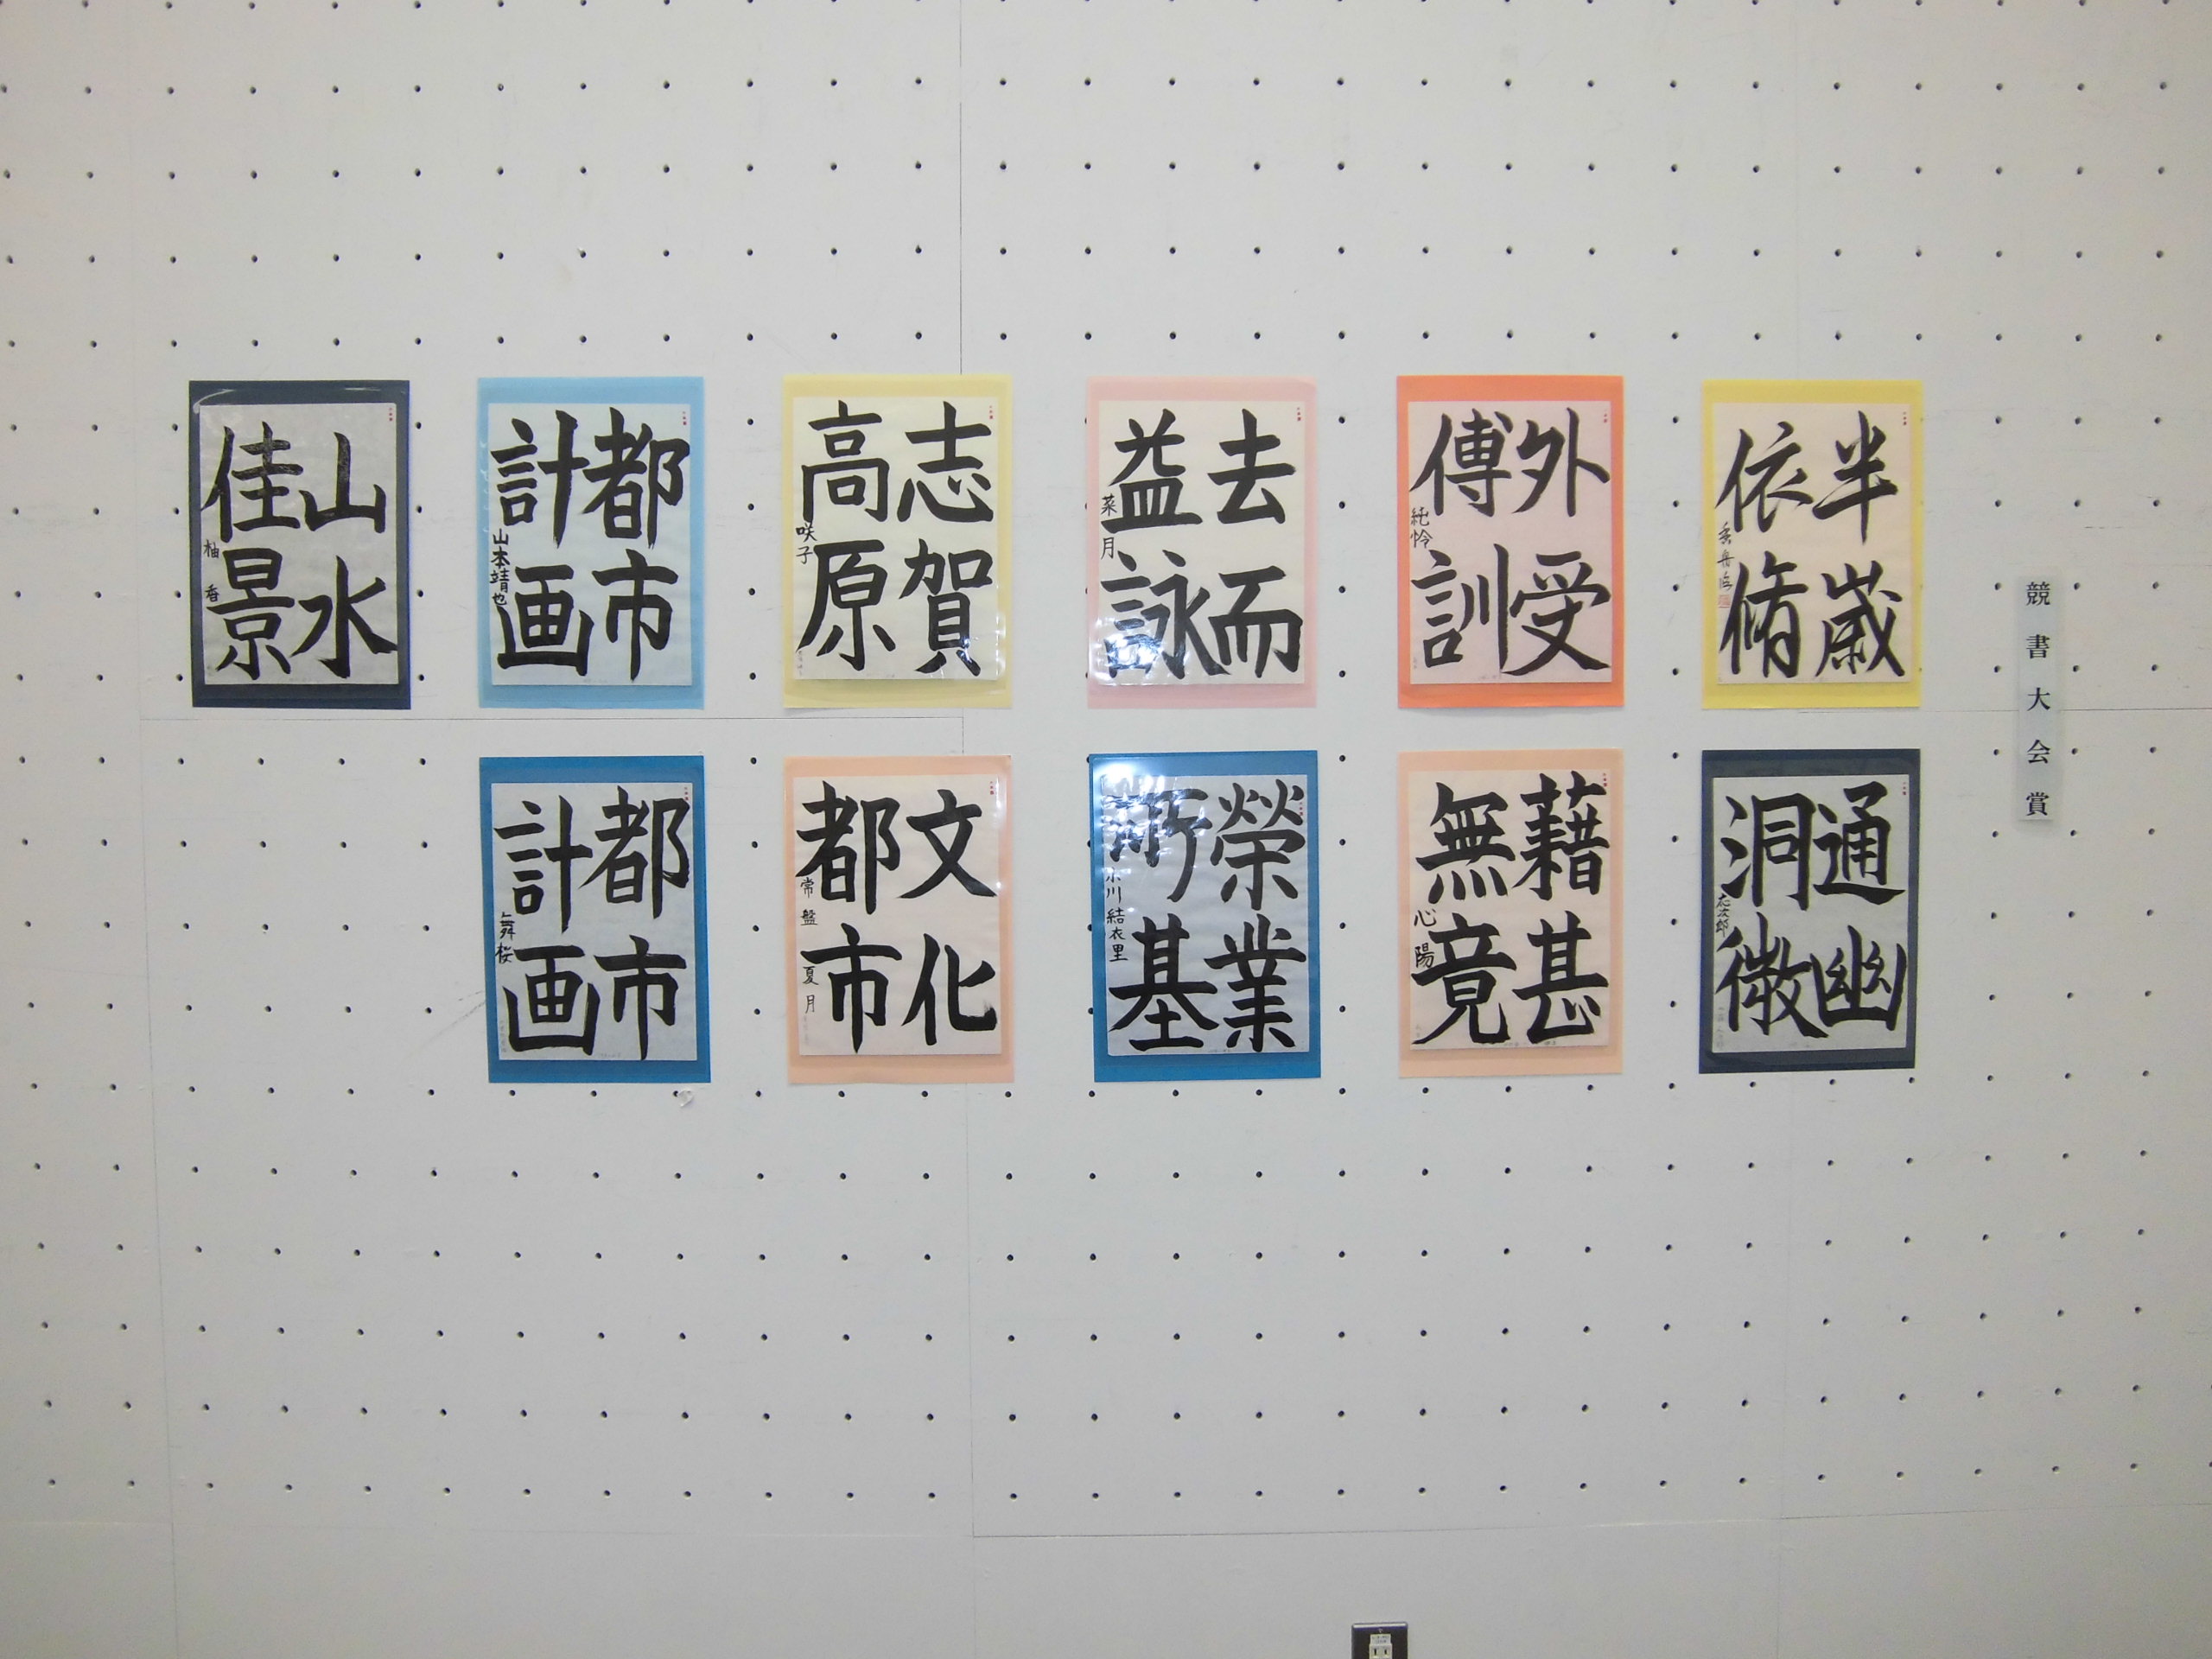 競書大会賞
半歳
依脩
外受
傅訓
純怜
去而
益詠
菜月
志賀
高原
咲子
都市
計画
山本靖也
山水
佳景
柚香
通幽
洞微
藉甚
無竟
心陽
榮業
所基
小川結衣里
文化
都市
常盤夏月
都市
計画
舞桜